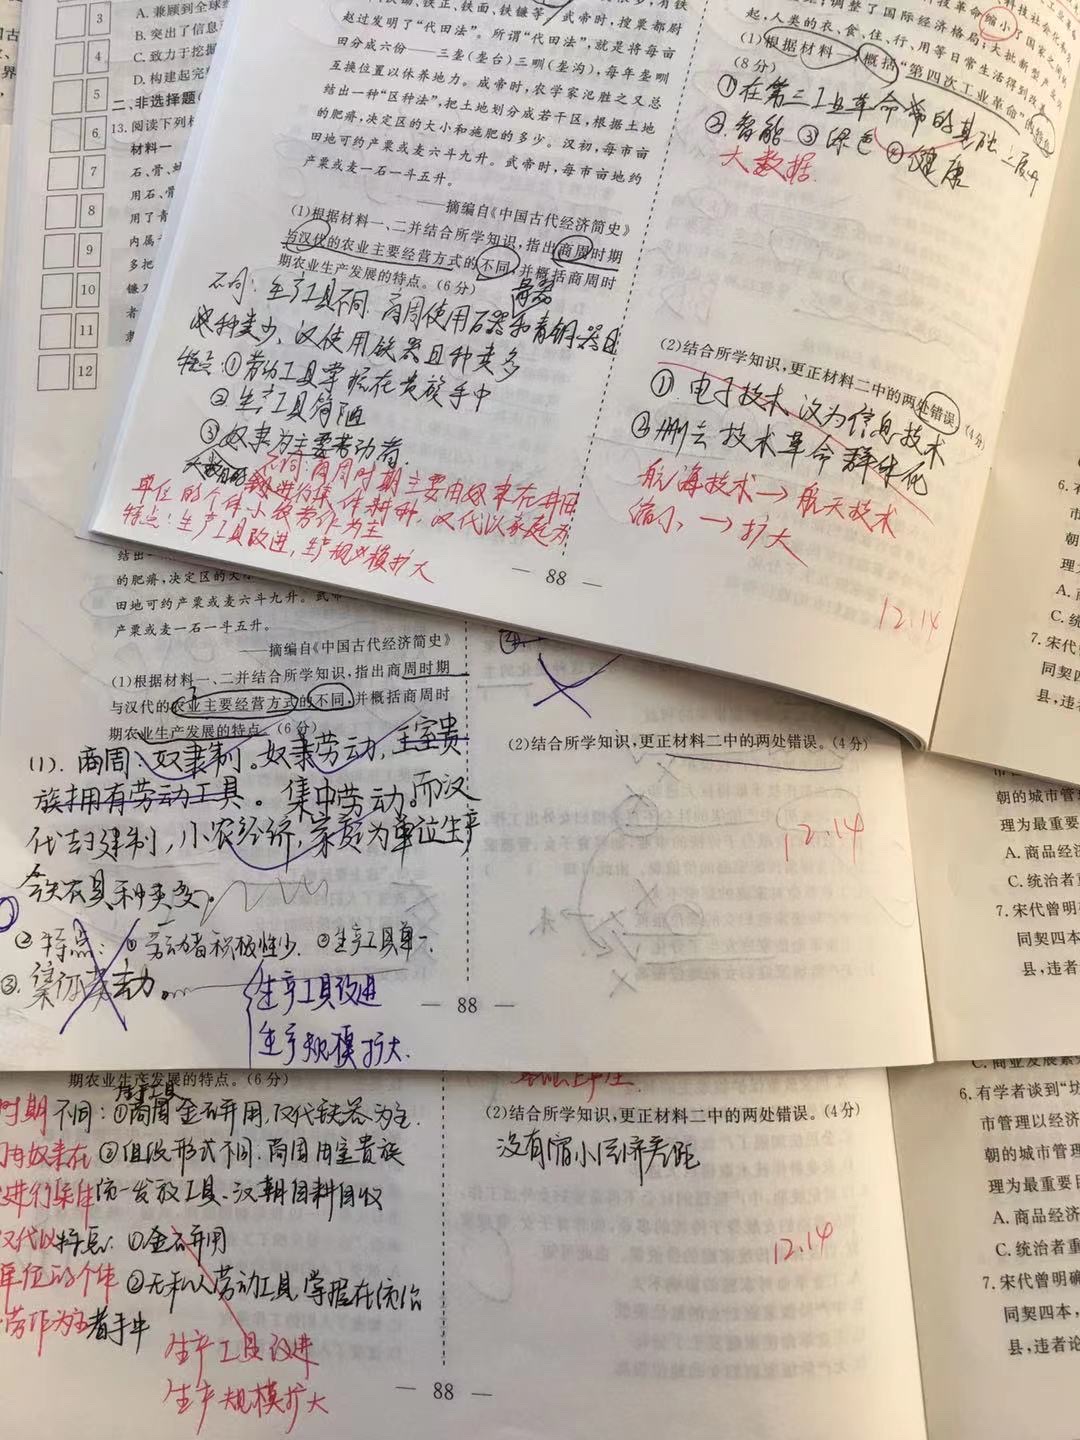 3
4
5
6
7
8
9
10
11
12
A. 兼顾到全球
B. 突出了信息
C. 致力于挖掘
D. 构建起完
二、非选择题
13. 阅读下列材
材料一
石、骨、蚌
用石、骨
用了青
内属
多把
镰刀
者
赵过发明了“代田法”。所谓“代田法”,就是将每亩
田分成六份——三垄(垄台)三甽(垄沟),每年垄甽
互换位置以休养地力。成帝时,农学家氾胜之又总
结出一种“区种法”,把土地划分成若干区,根据土地
的肥瘠,决定区的大小和施肥的多少。汉初,每市亩
田地可约产粟或麦六斗九升。武帝时,每市亩地约
产粟或麦一石一斗五升。
——摘编自《中国古代经济简史》
(1)根据材料一、二并结合所学知识,指出商周时期
与汉代的农业主要经营方式的不同,并概括商周时
期农业生产发展的特点。(6分)
不同:生产工具不同.商周使用石器和青铜器且
种类少、汉使用铁器且种类多
特点:①劳动工具掌握在贵族手中
②生产工具简陋
③奴隶为主要劳动者.
不同:商周时期主要由奴隶在井田
上进行集体耕种,汉代以家庭为
单位的个体小农劳作为主
特点:生产工具改进,生产规模扩大
— 88 —
调整了国际经济格局;大批新型产业兴
起,人类的衣、食、住、行、用等日常生活得到改善
(1)根据材料一,概括“第四次工业革命”的特点
(8分)
①在第三工业革命带的基础上展开
②.智能 ③绿色 ④健康
大数据.
(2)结合所学知识,更正材料二中的两处错误。(4分)
①.电子技术改为信息技术
②删去技术革命群体化
航海技术→航天技术
缩小→扩大
12.14
6. 有
市
朝
理
A. 商
C. 统
7. 宋代
同契四
县,违
结出一
的肥瘠,决定区的大小
田地可约产粟或麦六斗九升。武帝
产粟或麦一石一斗五升。
——摘编自《中国古代经济简史》
(1)根据材料一、二并结合所学知识,指出商周时期
与汉代的农业主要经营方式的不同,并概括商周时
期农业生产发展的特点。(6分)
(1). 商周:奴隶制。奴隶劳动,王室贵
族拥有劳动工具。集中劳动。而汉
代封建制,小农经济,家庭为单位生产
农具种类多.
② 特点:①劳动者积极性少.②生产工具单一.
③.集体劳动.
生产工具改进
生产规模扩大.
— 88 —
(2)结合所学知识,更正材料二中的两处错误。(4分)
12.14
朝的城市管理
理为最重要
A. 商品经济
C. 统治者重
7. 宋代曾明确
同契四本
县,违者
期农业生产发展的特点。(6分)
生产工具
时期 不同:①商周金石并用,汉代铁器为主.
奴隶在 ②组织形式不同:商周由王室贵族
进行集体 统一发放工具、汉朝自耕自收
汉代以 特点:①金石并用
单位的个体 ②无私人劳动工具,掌握在统治
劳作为主 者手中
生产工具改进
生产规模扩大
— 88 —
(2)结合所学知识,更正材料二中的两处错误。(4分)
没有缩小经济差距
12.14
C. 商业发展
6. 有学者谈到“坊
市管理以经济
朝的城市管理
理为最重要目
A. 商品经济
C. 统治者重
7. 宋代曾明确
同契四本,
县,违者论